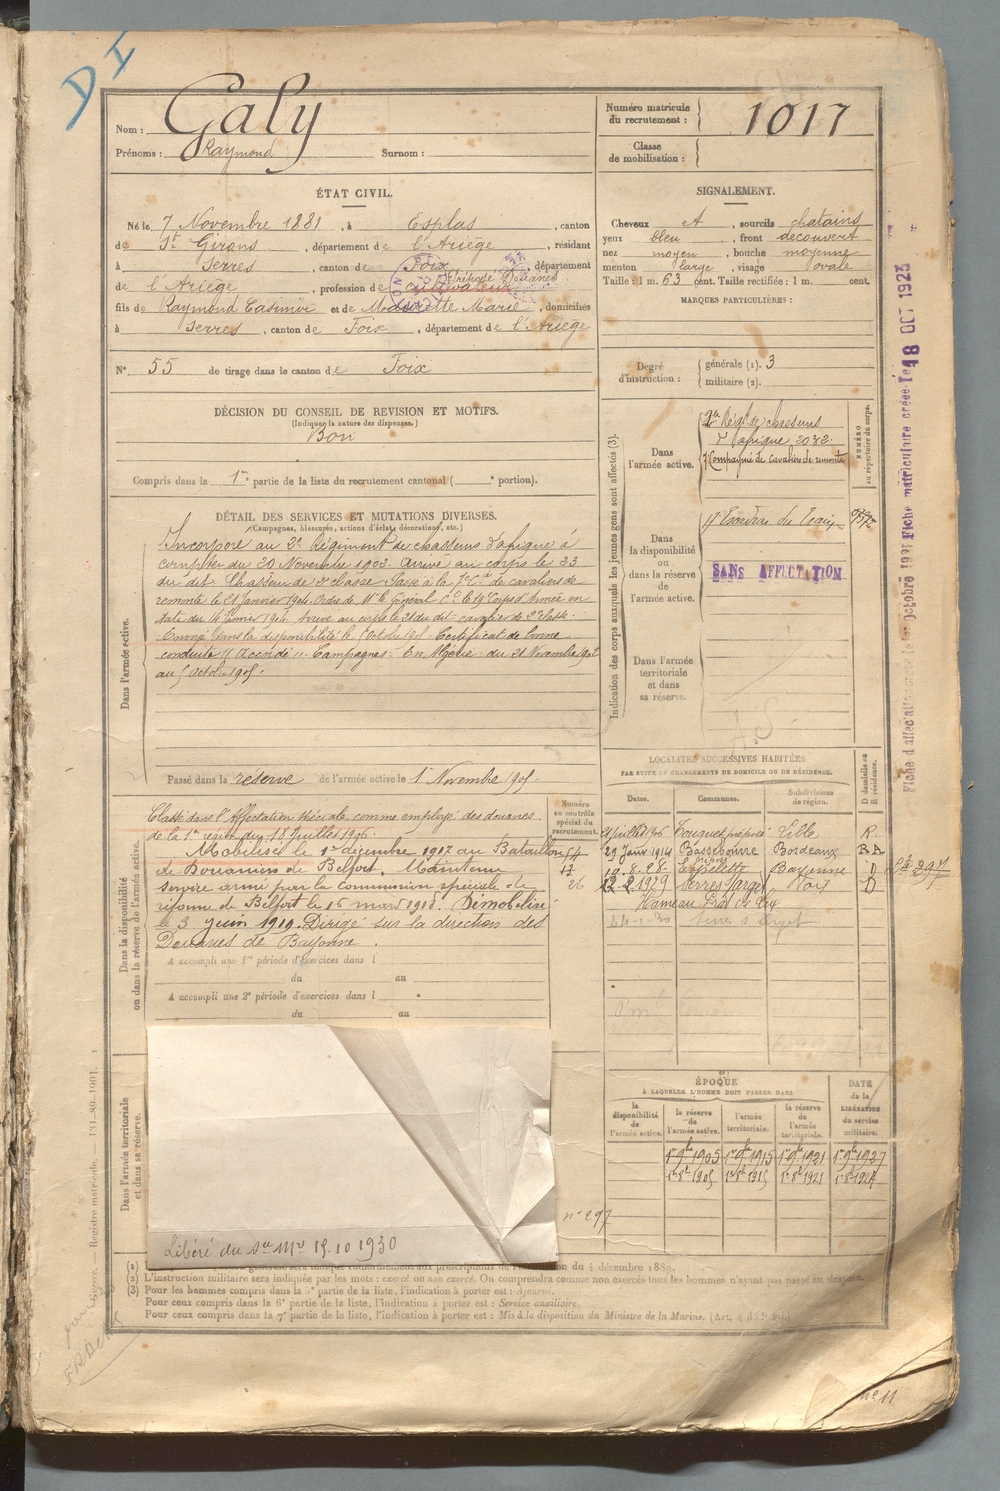 DI
Nom : Galy
Prénoms : Raymond Surnom :
Numéro matricule du recrutement : 1017
Classe de mobilisation :
ÉTAT CIVIL.
Né le 7 Novembre 1881, à Esplas, canton
de St Girons, département de l'Ariège, résidant
à Serres, canton de Foix, département
de l'Ariège, profession de cultivateur Préposé Douanes
fils de Raymond Casimir et de Marie, domiciliés
à Serres, canton de Foix, département de l'Ariège
N° 55 de tirage dans le canton de Foix
SIGNALEMENT.
Cheveux et, sourcils chatains
yeux bleu, front découvert
nez moyen, bouche moyenne
menton large, visage ovale
Taille : 1 m. 63 cent. Taille rectifiée : 1 m. cent.
MARQUES PARTICULIÈRES :
Degré d'instruction : générale (1). 3
militaire (2).
DÉCISION DU CONSEIL DE REVISION ET MOTIFS.
(Indiquer la nature des dispenses.)
Bon
Compris dans la 1re partie de la liste du recrutement cantonal ( e portion).
DÉTAIL DES SERVICES ET MUTATIONS DIVERSES.
(Campagnes, blessures, actions d'éclat, décorations, etc.)
Dans l'armée active.
Incorporé au 2e Régiment de chasseurs d'afrique à
compter du 20 Novembre 1902. Arrivé au corps le 23
du dit. Chasseur de 2e classe. Passé à la 7e Cie de cavaliers de
remonte le 21 Janvier 1904. Ordre de Mr le Général Ct le 19e Corps d'Armée en
date du 14 Janvier 1904. Arrivé au corps le 21 du dit cavalier de 2e classe.
Envoyé dans la disponibilité le 5 Octobre 1905. Certificat de bonne
conduite "Accordé". Campagnes : En Algérie : du 21 Novembre 1902
au 5 Octobre 1905.
Passé dans la réserve de l'armée active le 1er Novembre 1905.
Indication des corps auxquels les jeunes gens sont affectés (3).
NUMÉRO au répertoire du corps.
Dans l'armée active.
2e Régt de chasseurs
d'afrique 2032.
7e Compagnie de cavaliers de remonte
Dans la disponibilité ou dans la réserve de l'armée active.
17e Escadron du Train
SANS AFFECTATION
Dans l'armée territoriale et dans sa réserve.
Dans la disponibilité ou dans la réserve de l'armée active.
Classé dans l'Affectation spéciale comme employé des douanes
de la 1re région du 18 Juillet 1906.
Mobilisé le 1er décembre 1917 au Bataillon
de Douaniers de Belfort. Maintenu
service armé par la commission spéciale de
réforme de Belfort le 16 mars 1918. Démobilisé
le 3 Juin 1919. Dirigé sur la direction des
Douanes de Bayonne.
A accompli une 1re période d'exercices dans l
du au
A accompli une 2e période d'exercices dans l
du au
Numéro au contrôle spécial du recrutement.
LOCALITÉS SUCCESSIVES HABITÉES
PAR SUITE DE CHANGEMENTS DE DOMICILE OU DE RÉSIDENCE.
Dates. Communes. Subdivisions de région. D domicile ou R résidence.
Juillet 1906 Touquet préposé Lille R.
29 Janv 1914 Bassebourre Bordeaux RA
10.8.28. Espelette Bayonne D
12.2.1929 Serres Foix D
Hameau
ÉPOQUE
À LAQUELLE L'HOMME DOIT PASSER DANS
la disponibilité de l'armée active. la réserve de l'armée active. l'armée territoriale. la réserve de l'armée territoriale. DATE de la LIBÉRATION du service militaire.
1er 9bre 1905 1er 9bre 1915 1er 9bre 1921 1er 9bre 1927
1er 8bre 1905 1er 8bre 1915 1er 8bre 1921 1er 8bre 1927
n° 297
Dans l'armée territoriale et dans sa réserve.
Libéré du Sce Mre 15.10 1930
du 4 décembre 1889.
(2) L'instruction militaire sera indiquée par les mots : exercé ou non exercé. On comprendra comme non exercés tous les hommes n'ayant pas passé
(3) Pour les hommes compris dans la 5e partie de la liste, l'indication à porter est : Ajourné.
Pour ceux compris dans la 6e partie de la liste, l'indication à porter est : Service auxiliaire.
Pour ceux compris dans la 7e partie de la liste, l'indication à porter est : Mis à la disposition du Ministre de la Marine.
Fiche matriculaire créée le 18 OCT 1923
Registre matricule.
n° 11